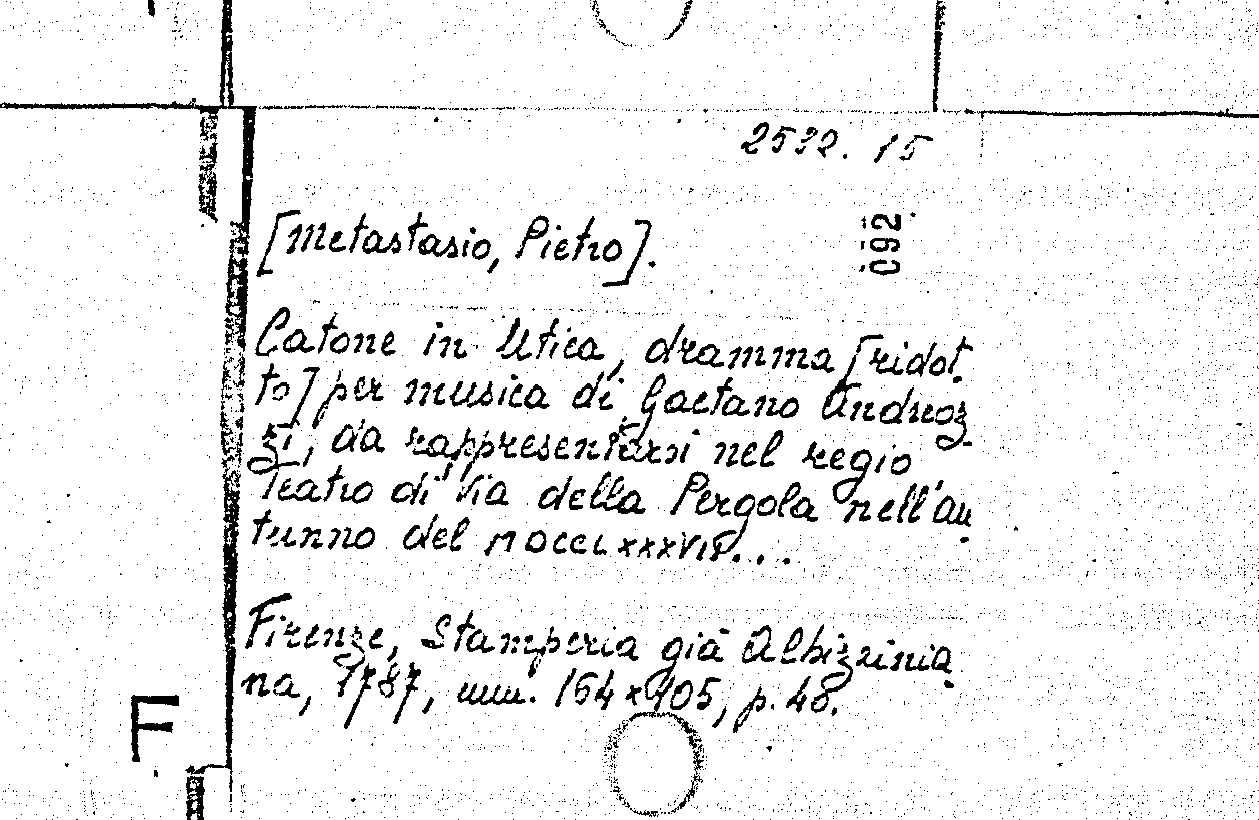 2532. 15
[Metastasio, Pietro].
092
Catone in Utica, dramma [ridot
to] per musica di Gaetano Andreoz
zi, da rappresentarsi nel regio
Teatro di Via della Pergola nell'au
tunno del MDCCLXXXVII...
Firenze, Stamperia già Albizzinia
na, 1787, mm. 164x105, p. 48.
F